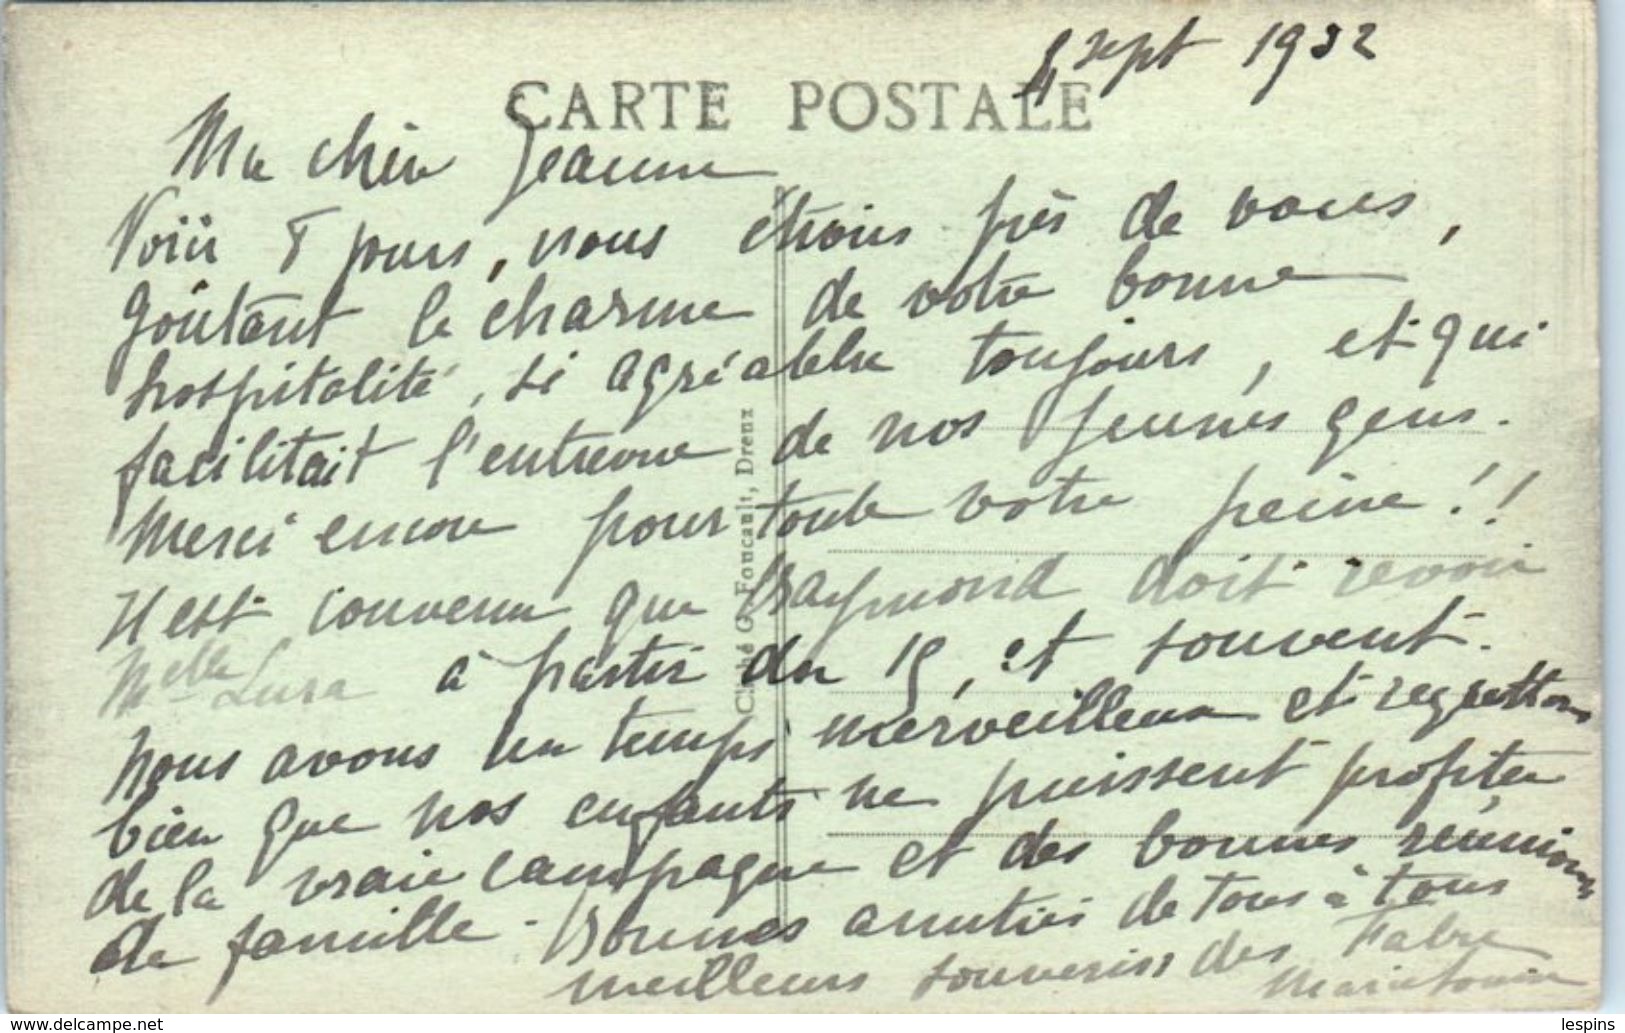 4 sept 1932
CARTE POSTALE
Ma chère Jeanne
Voici 8 jours, nous étions près de vous,
goûtant le charme de votre bonne
hospitalité, si agréable toujours, et qui
facilitait l'entrevue de nos jeunes gens.
Merci encore pour toute votre peine !!
Il est convenu que Raymond doit revoir
Melle Lura à partir du 15, et souvent.
Nous avons un temps merveilleux et regrettons
bien que nos enfants ne puissent profiter
de la vraie campagne et des bonnes réunions
de famille - Bonnes amitiés de tous à tous
meilleurs souvenirs des Fabre
Cliché G. Foucault, Dreux
lespins